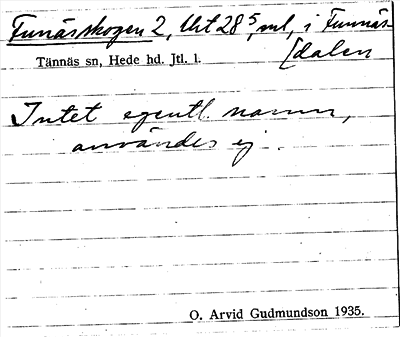 Funässkogen 2, Uht 28⁵, ml, i Funnäs-
[dalen
Tännäs sn, Hede hd. Jtl. l.
Intet egentl. namn,
användes ej.
O. Arvid Gudmundson 1935.